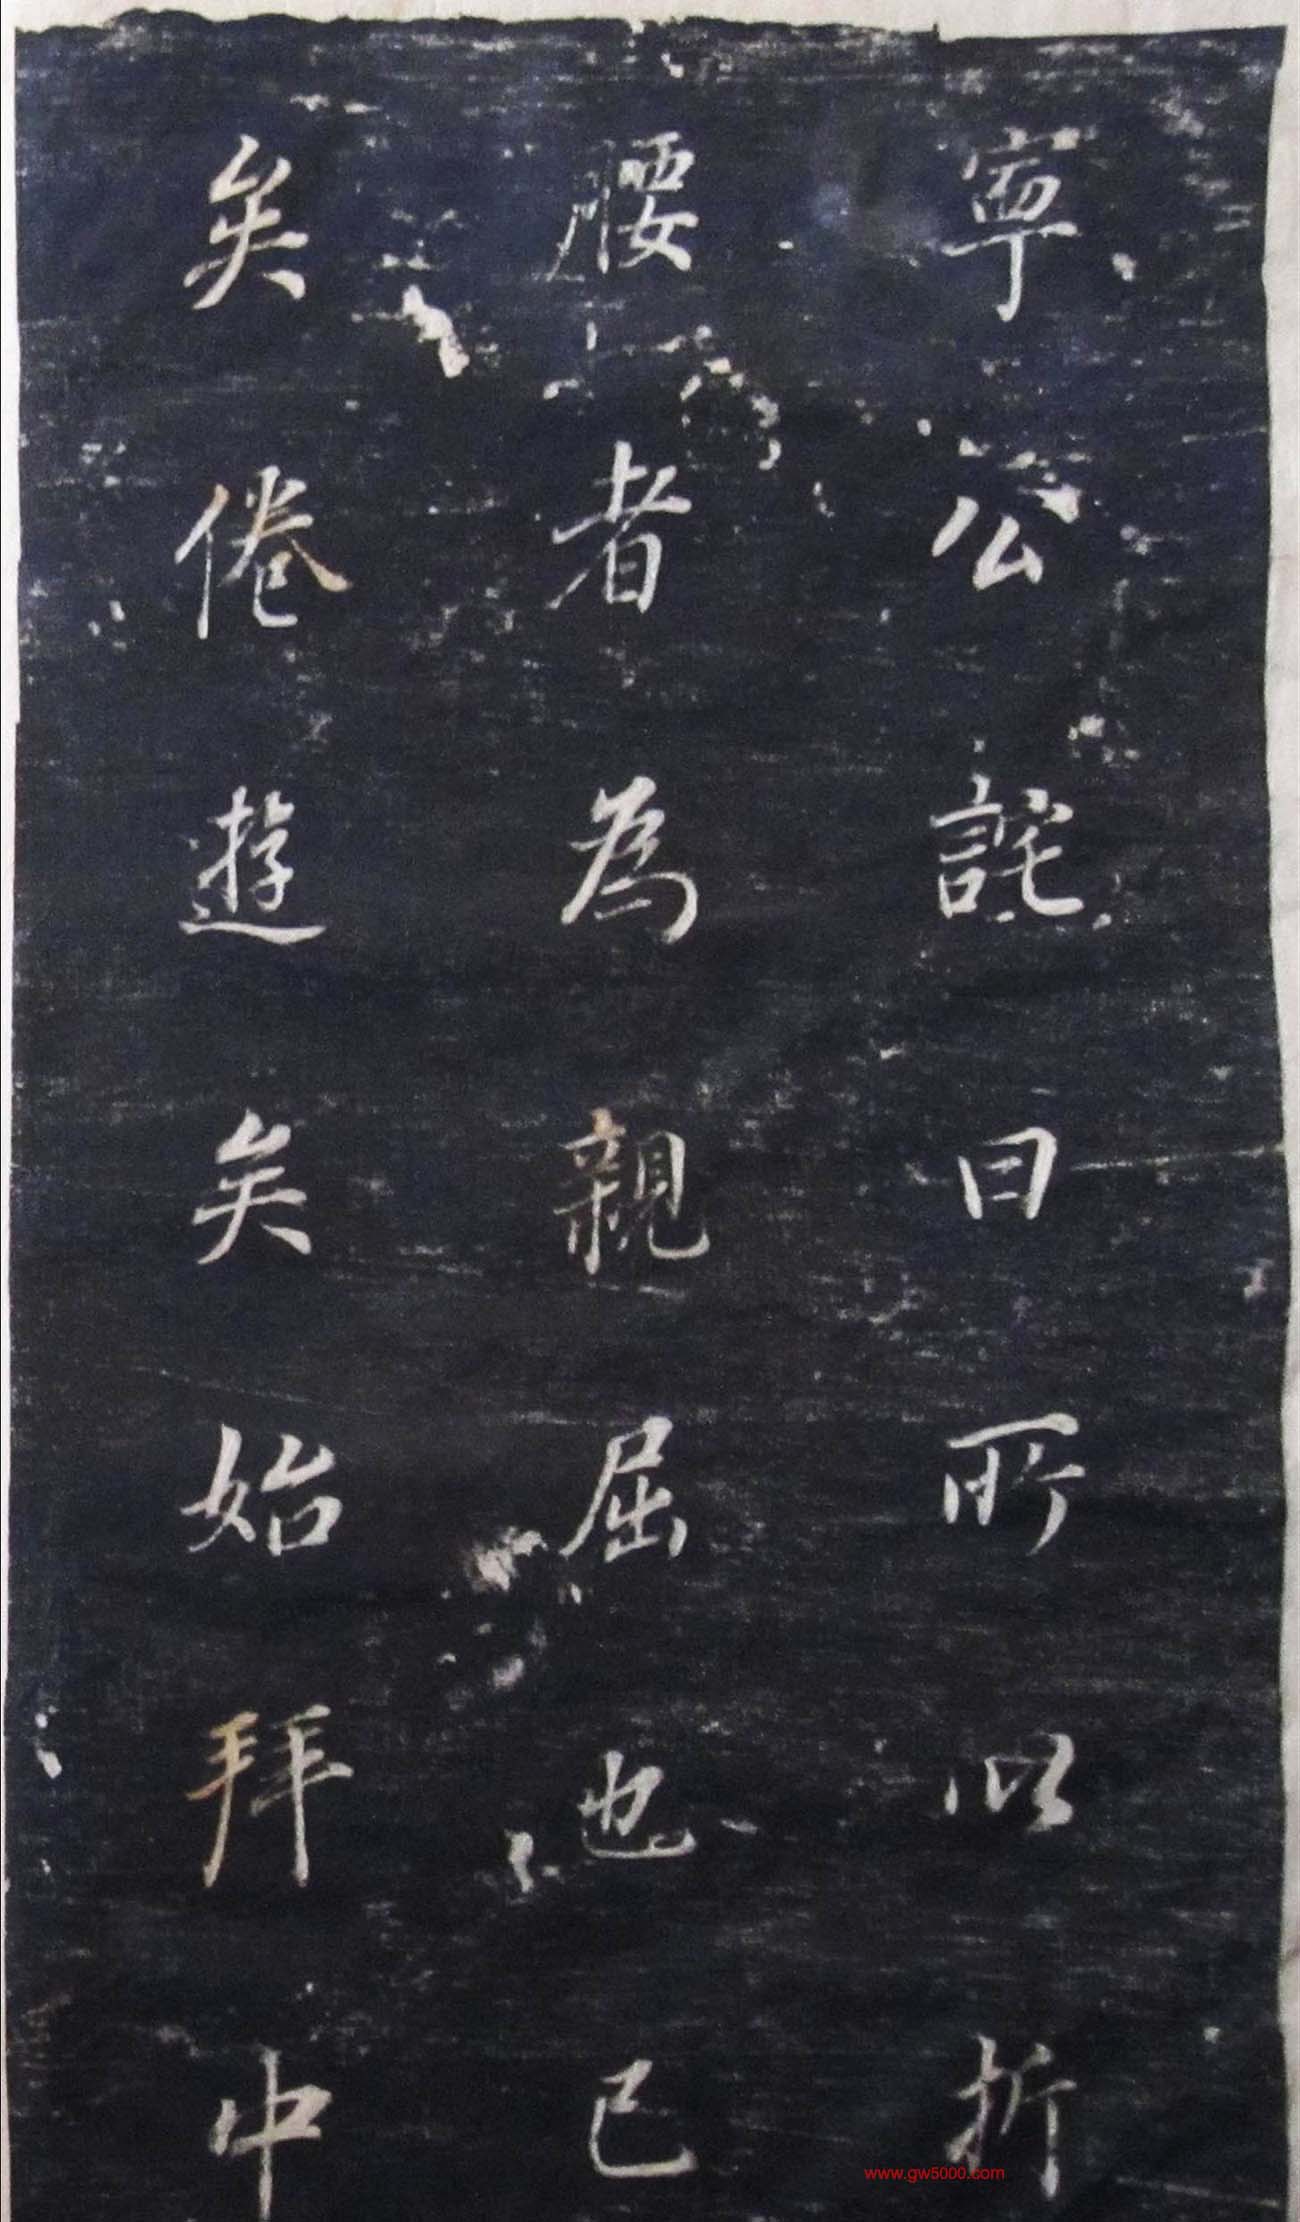 寗公詫曰所以折
腰者為親屈也已
矣倦遊矣始拜中
www.gw5000.com